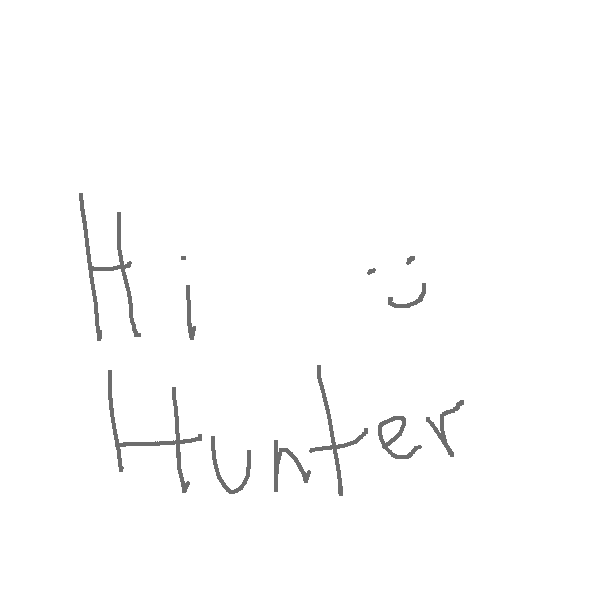 Hi
Hunter